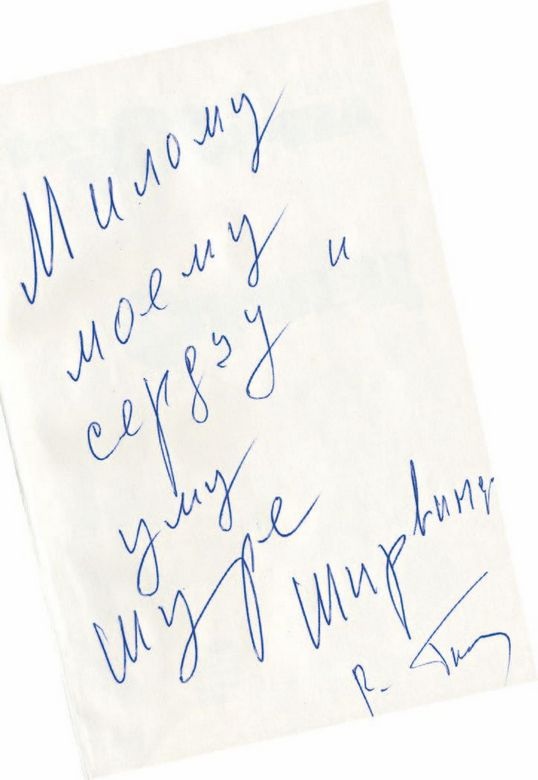 Милому
моему
сердцу и
уму
Шуре Ширвинд
Р.